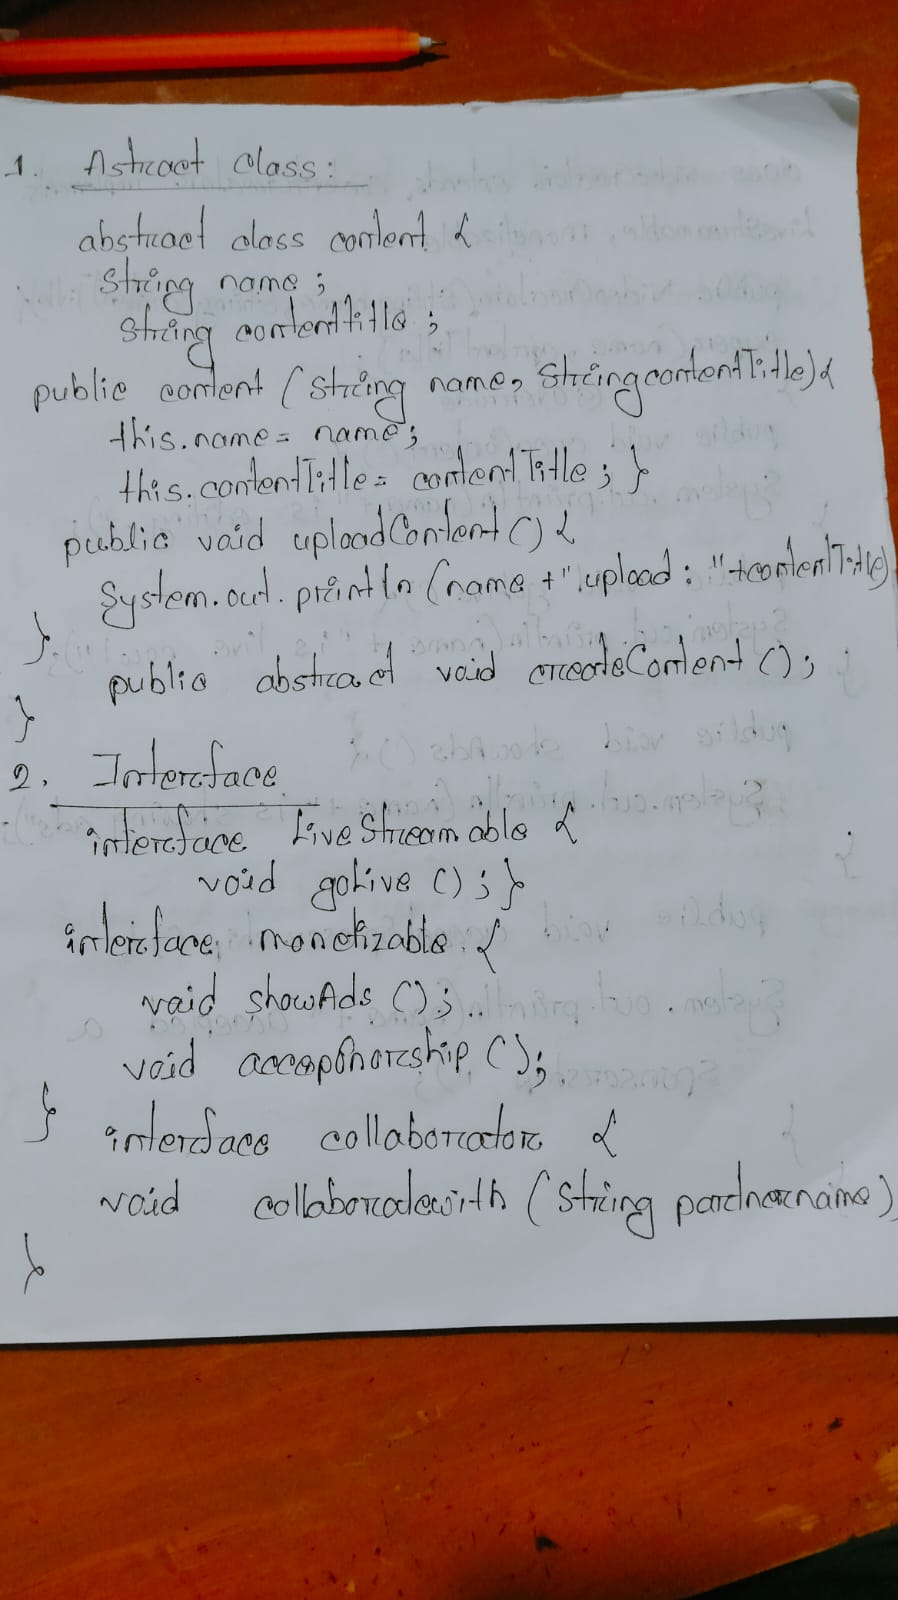 1. Astract class:
abstract class content {
String name ;
String contentTitle ;
public content ( String name, String contentTitle) {
this.name = name ;
this.contentTitle = contentTitle ; }
public void uploadContent () {
System.out.println (name +" upload : "+contentTitle)
}
public abstract void createContent () ;
}
2. Interface
interface LiveStreamable {
void goLive () ; }
interface monetizable {
void showAds () ;
void () ;
}
interface collaborator {
void collaboratewith ( String partnername)
}